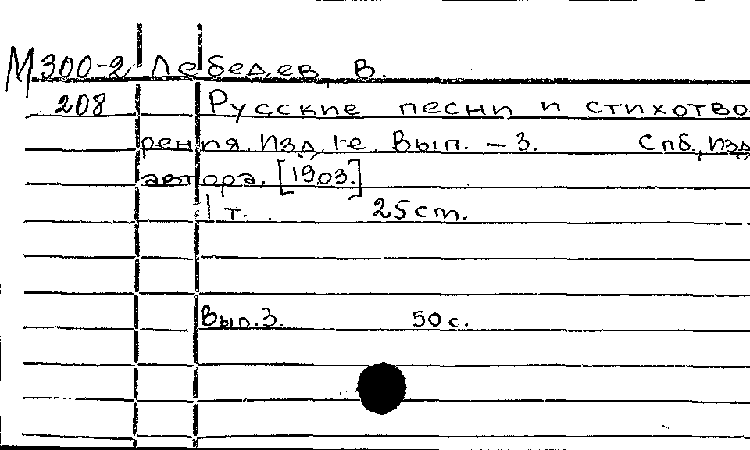 М300-2 Лебедев, В.
208 Русские песни и стихотво
рения. Изд. 1-е. Вып. – 3. Спб., Изд
автора. [1903.]
1 т. 25 ст.
Вып.3. 50 с.